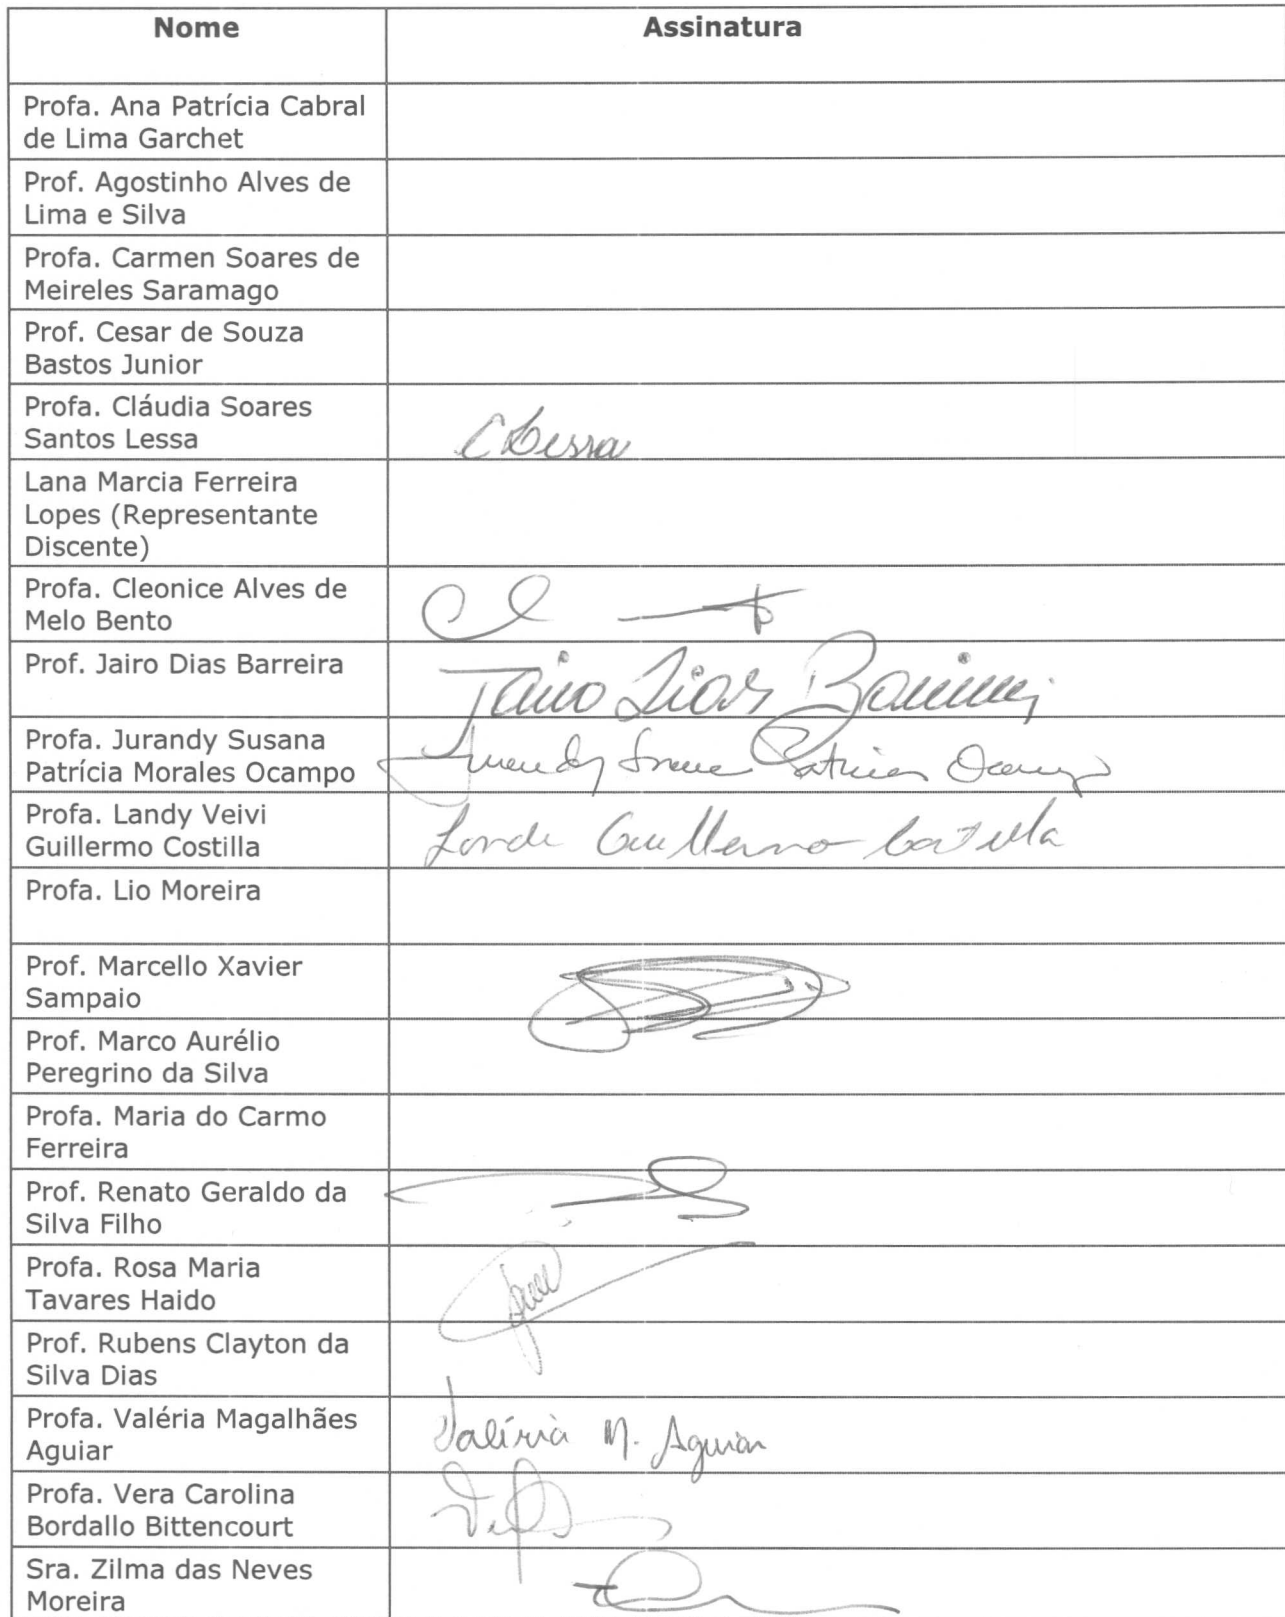 Nome
Assinatura
Profa. Ana Patrícia Cabral
de Lima Garchet
Prof. Agostinho Alves de
Lima e Silva
Profa. Carmen Soares de
Meireles Saramago
Prof. Cesar de Souza
Bastos Junior
Profa. Cláudia Soares
Santos Lessa
CLessa
Lana Marcia Ferreira
Lopes (Representante
Discente)
Profa. Cleonice Alves de
Melo Bento
Prof. Jairo Dias Barreira
Jairo Dias Barreira
Profa. Jurandy Susana
Patrícia Morales Ocampo
Jurandy Susana Patricia Ocampo
Profa. Landy Veivi
Guillermo Costilla
Guillermo Costilla
Profa. Lio Moreira
Prof. Marcello Xavier
Sampaio
Prof. Marco Aurélio
Peregrino da Silva
Profa. Maria do Carmo
Ferreira
Prof. Renato Geraldo da
Silva Filho
Profa. Rosa Maria
Tavares Haido
Prof. Rubens Clayton da
Silva Dias
Profa. Valéria Magalhães
Aguiar
Valéria M. Aguiar
Profa. Vera Carolina
Bordallo Bittencourt
Sra. Zilma das Neves
Moreira